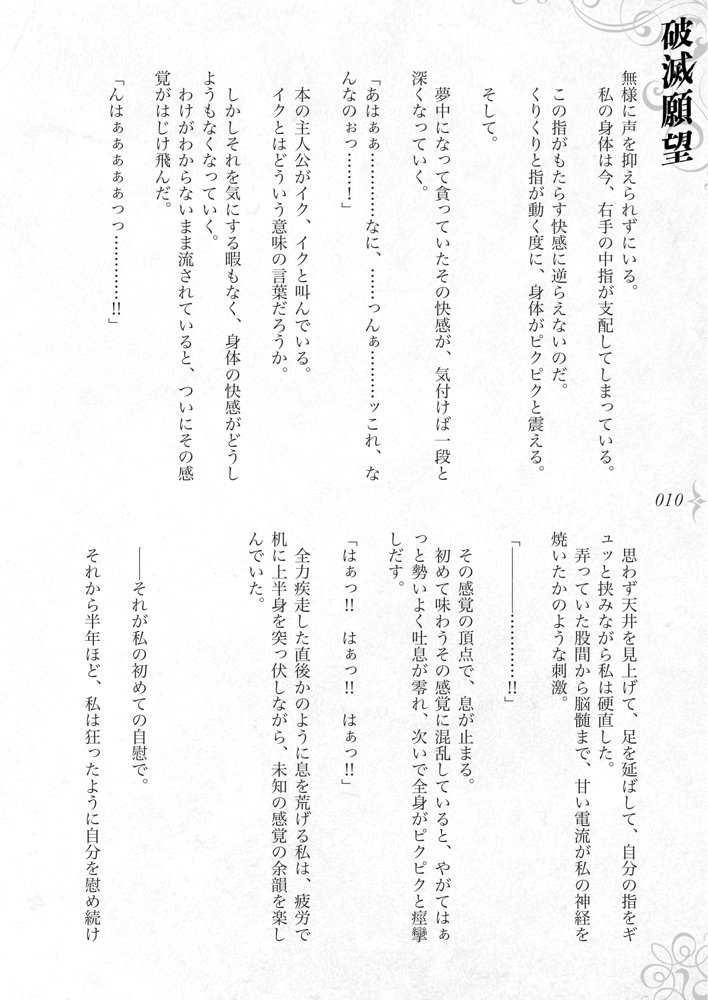 破滅願望
無様に声を抑えられずにいる。
私の身体は今、右手の中指が支配してしまっている。
この指がもたらす快感に逆らえないのだ。
くりくりと指が動く度に、身体がピクピクと震える。
そして。
夢中になって貪っていたその快感が、気付けば一段と
深くなっていく。
「あはぁぁ…………なに、……っんぁ………ッこれ、な
んなのぉっ……！」
本の主人公がイク、イクと叫んでいる。
イクとはどういう意味の言葉だろうか。
しかしそれを気にする暇もなく、身体の快感がどうし
ようもなくなっていく。
わけがわからないまま流されていると、ついにその感
覚がはじけ飛んだ。
「んはぁぁぁぁぁっっ…………!!」
010
思わず天井を見上げて、足を延ばして、自分の指をギ
ュッと挟みながら私は硬直した。
弄っていた股間から脳髄まで、甘い電流が私の神経を
焼いたかのような刺激。
「―――――……………!!」
その感覚の頂点で、息が止まる。
初めて味わうその感覚に混乱していると、やがてはぁ
っと勢いよく吐息が零れ、次いで全身がピクピクと痙攣
しだす。
「はぁっ!!　はぁっ!!　はぁっ!!」
全力疾走した直後かのように息を荒げる私は、疲労で
机に上半身を突っ伏しながら、未知の感覚の余韻を楽し
んでいた。
――それが私の初めての自慰で。
それから半年ほど、私は狂ったように自分を慰め続け